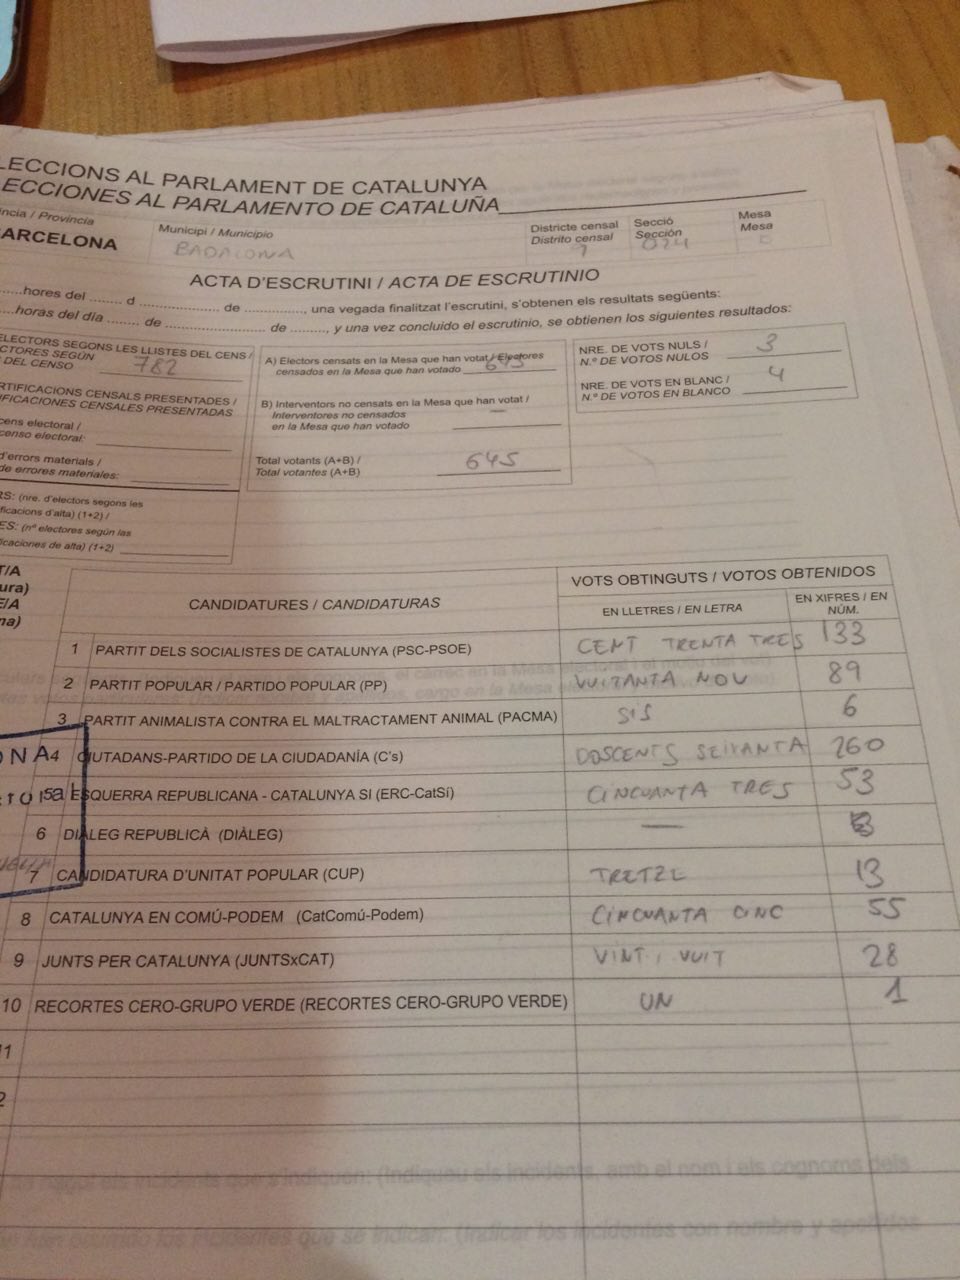 LECCIONS AL PARLAMENT DE CATALUNYA
ECCIONES AL PARLAMENTO DE CATALUÑA
ncia / Provincia
ARCELONA
Municipi / Municipio
BADALONA
Districte censal
Distrito censal
Secció
Sección
024
Mesa
Mesa
ACTA D'ESCRUTINI / ACTA DE ESCRUTINIO
......hores del ........ d .................... de .............., una vegada finalitzat l'escrutini, s'obtenen els resultats següents:
horas del día ........ de .......................... de ........, y una vez concluido el escrutinio, se obtienen los siguientes resultados:
ELECTORS SEGONS LES LLISTES DEL CENS /
CTORES SEGÚN
DEL CENSO 782
RTIFICACIONS CENSALS PRESENTADES /
IFICACIONES CENSALES PRESENTADAS
cens electoral /
censo electoral:
d'errors materials /
de errores materiales:
RS: (nre. d'electors segons les
ificacions d'alta) (1+2) /
ES: (nº electores según las
ificaciones de alta) (1+2)
A) Electors censats en la Mesa que han votat / Electores
censados en la Mesa que han votado 645
B) Interventors no censats en la Mesa que han votat /
Interventores no censados
en la Mesa que han votado —
Total votants (A+B) /
Total votantes (A+B) 645
NRE. DE VOTS NULS /
N.º DE VOTOS NULOS 3
NRE. DE VOTS EN BLANC /
N.º DE VOTOS EN BLANCO 4
T/A
ura)
E/A
na)
CANDIDATURES / CANDIDATURAS
VOTS OBTINGUTS / VOTOS OBTENIDOS
EN LLETRES / EN LETRA
EN XIFRES / EN
NÚM.
1 PARTIT DELS SOCIALISTES DE CATALUNYA (PSC-PSOE) CENT TRENTA TRES 133
2 PARTIT POPULAR / PARTIDO POPULAR (PP) VUITANTA NOU 89
3 PARTIT ANIMALISTA CONTRA EL MALTRACTAMENT ANIMAL (PACMA) SIS 6
4 CIUTADANS-PARTIDO DE LA CIUDADANÍA (C's) DOSCENTS SEIXANTA 260
5 ESQUERRA REPUBLICANA - CATALUNYA SI (ERC-CatSí) CINCUANTA TRES 53
6 DIÀLEG REPUBLICÀ (DIÀLEG) —
7 CANDIDATURA D'UNITAT POPULAR (CUP) TRETZE 13
8 CATALUNYA EN COMÚ-PODEM (CatComú-Podem) CINCUANTA CINC 55
9 JUNTS PER CATALUNYA (JUNTSxCAT) VINT I VUIT 28
10 RECORTES CERO-GRUPO VERDE (RECORTES CERO-GRUPO VERDE) UN 1
11
2
ONA